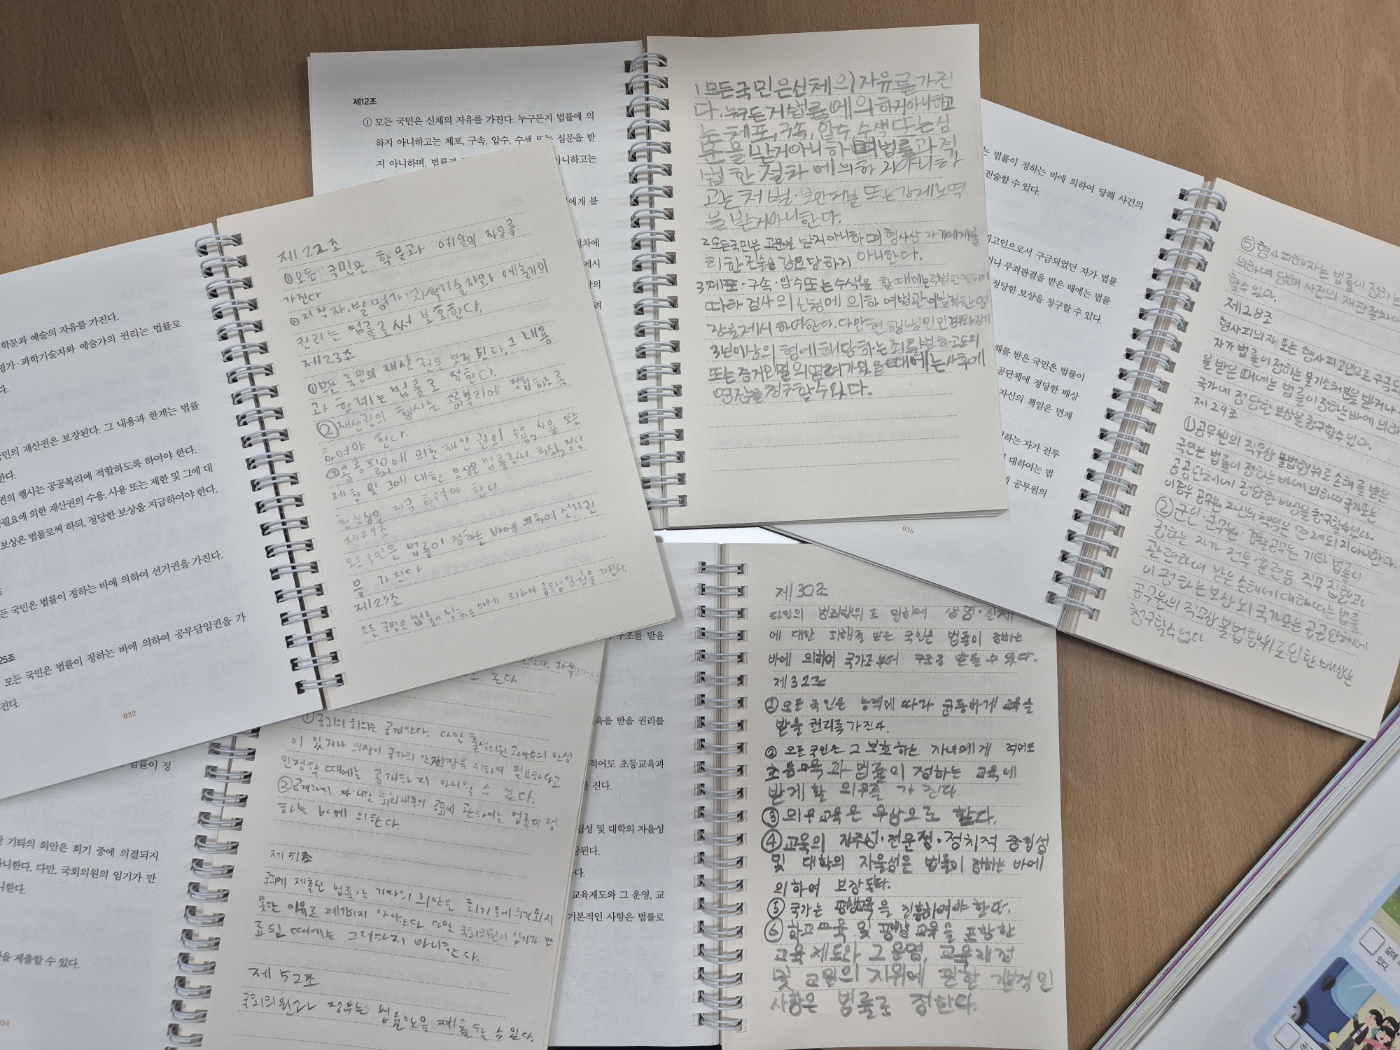 제12조
① 모든 국민은 신체의 자유를 가진다. 누구든지 법률에 의
하지 아니하고는 체포, 구속, 압수, 수색 또는 심문을 받
지 아니하며, 법률과
니하고는
1 모든국민은신체의자유를가진
다. 누구든지법률에의하지아니하고
는체포,구속,압수,수색또는심
문을받지아니하며법률과적
법한절차에의하지아니하
고는처벌·보안처분또는강제노역
을받지아니한다.
2 모든국민은고문을받지아니하며형사상자기에게불
리한진술을강요당하지아니한다.
3 체포·구속·압수또는수색을할때에는
따라검사의신청에의하여법관이발부한영
장을제시하여야한다. 다만현행범인인경우와장기
3년이상의형에해당하는죄를범하고도피
또는증거인멸의염려가있을때에는사후에
영장을청구할수있다.
는 법률이 정하는 바에 의하여 당해 사건의
진술할 수 있다.
피고인으로서 구금되었던 자가 법률
이나 무죄판결을 받은 때에는 법률
정당한 보상을 청구할 수 있다.
해를 받은 국민은 법률이
공단체에 정당한 배상
자신의 책임은 면제
하는 자가 전투
대하여는 법
공무원의
026
⑤ 형사피해자는 법률이 정하는
의하여 당해 사건의 재판절차
할수 있다.
제28조
형사피의자 또는 형사피고인으로서 구금
자가 법률이 정하는 불기소처분을 받거나
을 받은 때에는 법률이 정하는 바에 의하
국가에 정당한 보상을 청구할수 있다.
제29조
① 공무원의 직무상 불법행위로 손해를 받은
국민은 법률이 정하는 바에 의하여 국가또는
공공단체에 정당한 배상을 청구할수있다.
이경우 공무원 자신의 책임은 면제되지아니한다.
② 군인·군무원·경찰공무원 기타 법률이
정하는 자가 전투·훈련등 직무집행과
관련하여 받은 손해에 대하여는 법률
이 정하는 보상 외 국가또는 공공단체에
공무원의 직무상 불법행위로 인한 배상은
청구할수 없다
학문과 예술의 자유를 가진다.
명가·과학기술자와 예술가의 권리는 법률로
다.
국민의 재산권은 보장된다. 그 내용과 한계는 법률
한다.
권의 행사는 공공복리에 적합하도록 하여야 한다.
필요에 의한 재산권의 수용, 사용 또는 제한 및 그에 대
보상은 법률로써 하되, 정당한 보상을 지급하여야 한다.
든 국민은 법률이 정하는 바에 의하여 선거권을 가진다.
25조
모든 국민은 법률이 정하는 바에 의하여 공무담임권을 가
진다.
032
제22조
①모든 국민은 학문과 예술의 자유를
가진다
②저작자·발명가·과학기술자와 예술가의
권리는 법률로써 보호한다.
제23조
①모든 국민의 재산권은 보장된다. 그 내용
과 한계는 법률로 정한다.
②재산권의 행사는 공공복리에 적합하도록
하여야 한다
③공공필요에 의한 재산권의 수용, 사용 또는
제한 및 그에 대한 보상은 법률로써 하되, 정당
한 보상을 지급하여야 한다
제24조
모든 국민은 법률이 정하는 바에 의하여 선거권
을 가진다
제25조
모든 국민은 법률이 정하는 바에 의하여 공무담임권을 가진다.
법률이 정
기타의 의안은 회기 중에 의결되지
아니한다. 다만, 국회의원의 임기가 만
니한다.
을 제출할 수 있다.
①국회의 회의는 공개한다. 다만 출석의원 과반수의 찬성
이 있거나 의장이 국가의 안전보장을 위하여 필요하다고
인정할 때에는 공개하지 아니할 수 있다.
②공개하지 아니한 회의내용의 공표에 관하여는 법률이 정
하는 바에 의한다
제51조
국회에 제출된 법률안 기타의 의안은 회기중에 의결되지
못한 이유로 폐기되지 아니한다 다만 국회의원의 임기가 만
료된 때에는 그러하지 아니한다.
제 52조
국회의원과 정부는 법률안을 제출할 수 있다.
구조를 받을
육을 받을 권리를
적어도 초등교육과
진다.
성 및 대학의 자율성
된다.
교육제도와 그 운영, 교
기본적인 사항은 법률로
제30조
타인의 범죄행위로 인하여 생명·신체
에 대한 피해를 받은 국민은 법률이 정하는
바에 의하여 국가로부터 구조를 받을 수 있다.
제31조
① 모든 국민은 능력에 따라 균등하게 교육을
받을 권리를 가진다.
② 모든 국민은 그 보호하는 자녀에게 적어도
초등교육과 법률이 정하는 교육에
받게 할 의무를 가 진다.
③ 의무교육은 무상으로 한다.
④ 교육의 자주성·전문성·정치적 중립성
및 대학의 자율성은 법률이 정하는 바에
의하여 보장된다.
⑤ 국가는 평생교육을 진흥하여야 한다.
⑥ 학교교육 및 평생교육을 포함한
교육제도와 그 운영, 교육재정
및 교원의 지위에 관한 기본적인
사항은 법률로 정한다.